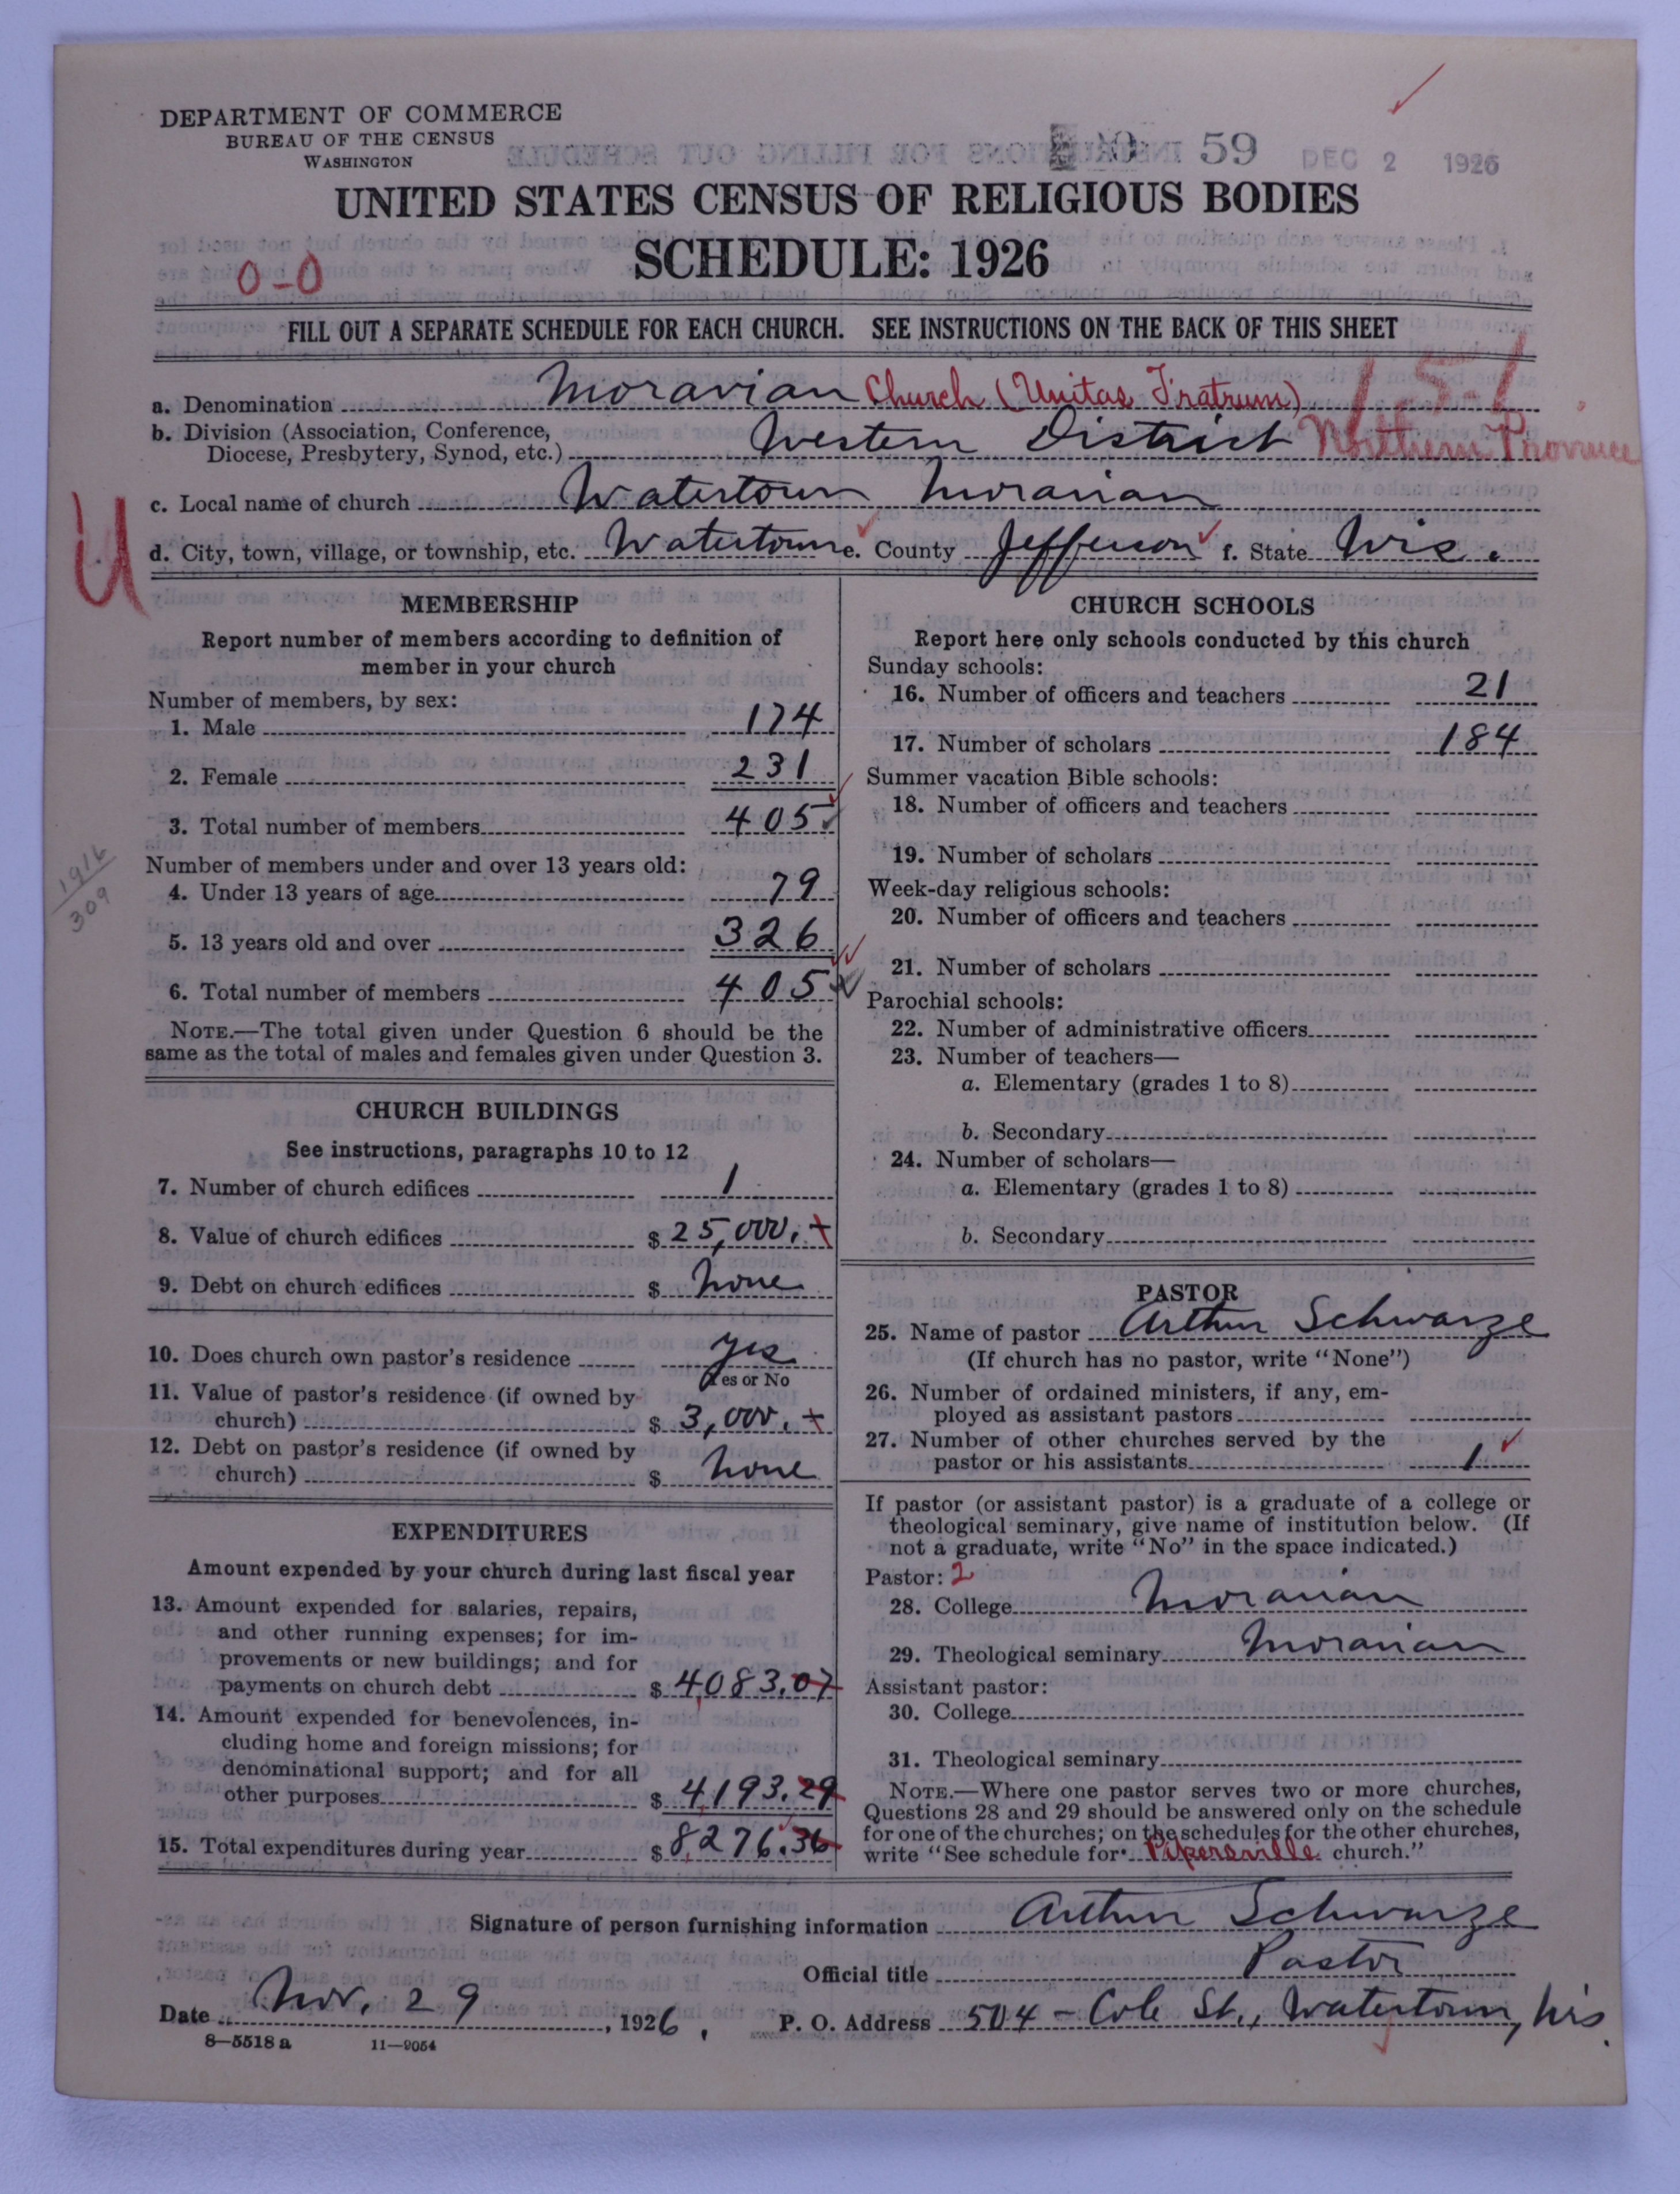 DEPARTMENT OF COMMERCE
BUREAU OF THE CENSUS
WASHINGTON
59 DEC 2 1926
UNITED STATES CENSUS OF RELIGIOUS BODIES
SCHEDULE: 1926
0-0
FILL OUT A SEPARATE SCHEDULE FOR EACH CHURCH. SEE INSTRUCTIONS ON THE BACK OF THIS SHEET
151
a. Denomination Moravian Church (Unitas Fratrum)
b. Division (Association, Conference, Diocese, Presbytery, Synod, etc.) Western District Northern Province
c. Local name of church Watertown Moravian
U
d. City, town, village, or township, etc. Watertown e. County Jefferson f. State Wis.
MEMBERSHIP
Report number of members according to definition of
member in your church
Number of members, by sex:
1. Male 174
2. Female 231
3. Total number of members 405
1916
309
Number of members under and over 13 years old:
4. Under 13 years of age 79
5. 13 years old and over 326
6. Total number of members 405
NOTE.—The total given under Question 6 should be the
same as the total of males and females given under Question 3.
CHURCH BUILDINGS
See instructions, paragraphs 10 to 12
7. Number of church edifices 1
8. Value of church edifices $ 25,000.
9. Debt on church edifices $ None
10. Does church own pastor's residence Yes
Yes or No
11. Value of pastor's residence (if owned by
church) $ 3,000.
12. Debt on pastor's residence (if owned by
church) $ None
EXPENDITURES
Amount expended by your church during last fiscal year
13. Amount expended for salaries, repairs,
and other running expenses; for im-
provements or new buildings; and for
payments on church debt $ 4083.07
14. Amount expended for benevolences, in-
cluding home and foreign missions; for
denominational support; and for all
other purposes $ 4193.29
15. Total expenditures during year $ 8276.36
CHURCH SCHOOLS
Report here only schools conducted by this church
Sunday schools:
16. Number of officers and teachers 21
17. Number of scholars 184
Summer vacation Bible schools:
18. Number of officers and teachers
19. Number of scholars
Week-day religious schools:
20. Number of officers and teachers
21. Number of scholars
Parochial schools:
22. Number of administrative officers
23. Number of teachers—
a. Elementary (grades 1 to 8)
b. Secondary
24. Number of scholars—
a. Elementary (grades 1 to 8)
b. Secondary
PASTOR
25. Name of pastor Arthur Schwarze
(If church has no pastor, write "None")
26. Number of ordained ministers, if any, em-
ployed as assistant pastors
27. Number of other churches served by the
pastor or his assistants 1
If pastor (or assistant pastor) is a graduate of a college or
theological seminary, give name of institution below. (If
not a graduate, write "No" in the space indicated.)
Pastor: 2
28. College Moravian
29. Theological seminary Moravian
Assistant pastor:
30. College
31. Theological seminary
NOTE.—Where one pastor serves two or more churches,
Questions 28 and 29 should be answered only on the schedule
for one of the churches; on the schedules for the other churches,
write "See schedule for Pipersville church."
Signature of person furnishing information Arthur Schwarze
Official title Pastor
Date Nov. 29, 1926. P. O. Address 504 - Cole St., Watertown, Wis.
8—5518 a 11—9054